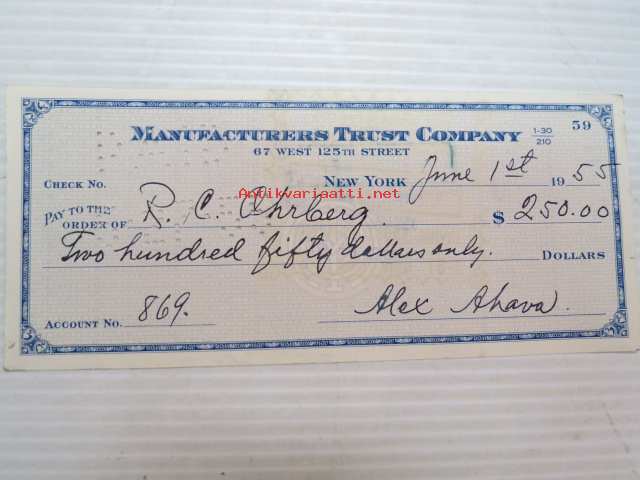 MANUFACTURERS TRUST COMPANY 1-30/210 59
67 WEST 125TH STREET
CHECK No. NEW YORK June 1st 1955
Antikvariaatti.net
PAY TO THE ORDER OF R. C. Ohrberg $ 250.00
Two hundred fifty dollars only. DOLLARS
ACCOUNT No. 869. Alex Ahava.